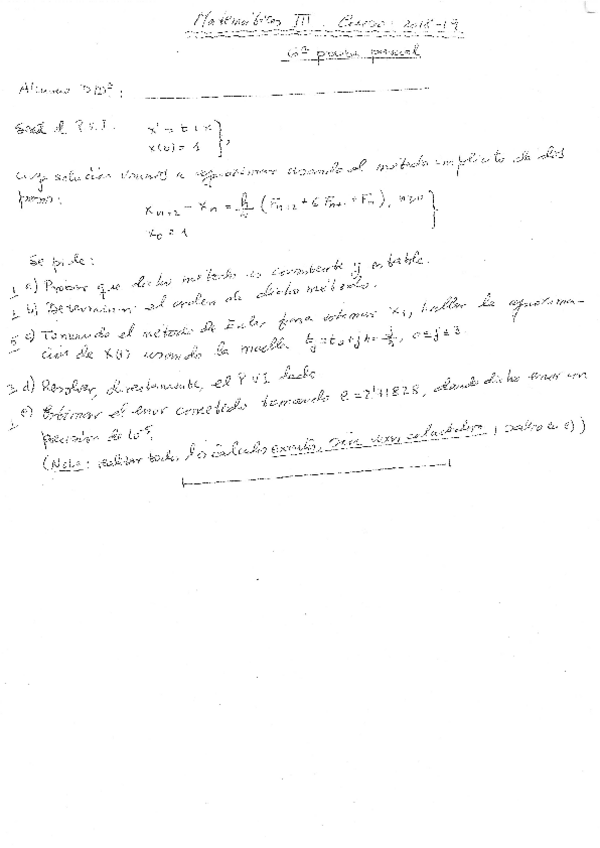 Matemáticas III. Curso: 2018-19
prueba parcial
Alumno D/Dª:
Sea el P.V.I. x' = t + x
x(0) = 1 } ,
cuya solución vamos a aproximar usando el método implícito de dos
pasos:
x_{n+2} - x_n = h/ (F_{n+2} + 6 F_{n+1} + F_n), n≥0
x_0 = 1 }
Se pide:
1 a) Probar que dicho método es consistente y estable.
1 b) Determinar el orden de dicho método.
5 c) Tomando el método de Euler para estimar x_1, hallar la aproxima-
ción de x(1) usando la malla t_j = t_0 + jh = j/3, 0≤j≤3.
2 d) Resolver, directamente, el PVI dado
1 e) Estimar el error cometido tomando e = 2'71828, dando dicho error con
precisión de 10^-5.
(Nota: realizar todos los cálculos exactos, sin usar calculadora, salvo en e))